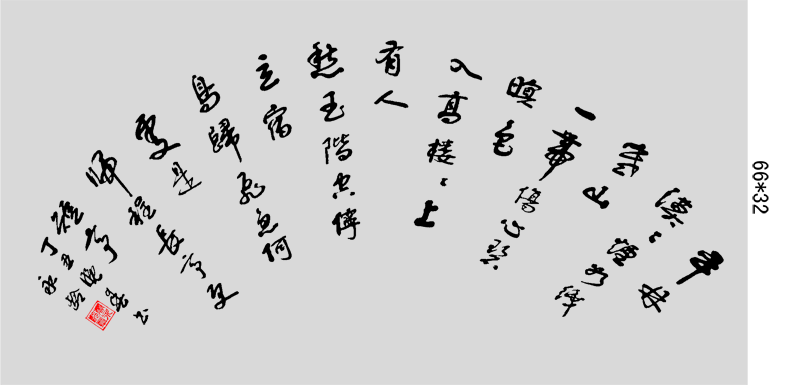 平林
漠〻煙如織
寒山
一帶傷心碧
暝色
入高樓〻上
有人
愁玉階空佇
立宿
鳥歸飛急何
處是
歸程長亭更
短亭
丁丑晚春書
66*32